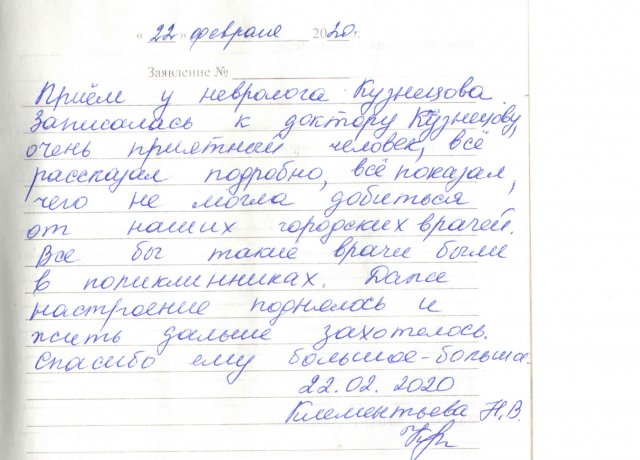 « 22 » февраля 2020 г.
Заявление №
Приём у невролога Кузнецова.
Записалась к доктору Кузнецову,
очень приятный человек, всё
рассказал подробно, всё показал,
чего не могла добиться
от наших городских врачей.
Все бы такие врачи были
в поликлинниках. Даже
настроение поднялось и
жить дальше захотелось.
Спасибо ему большое-большое.
22.02.2020
Клементьева Н.В.